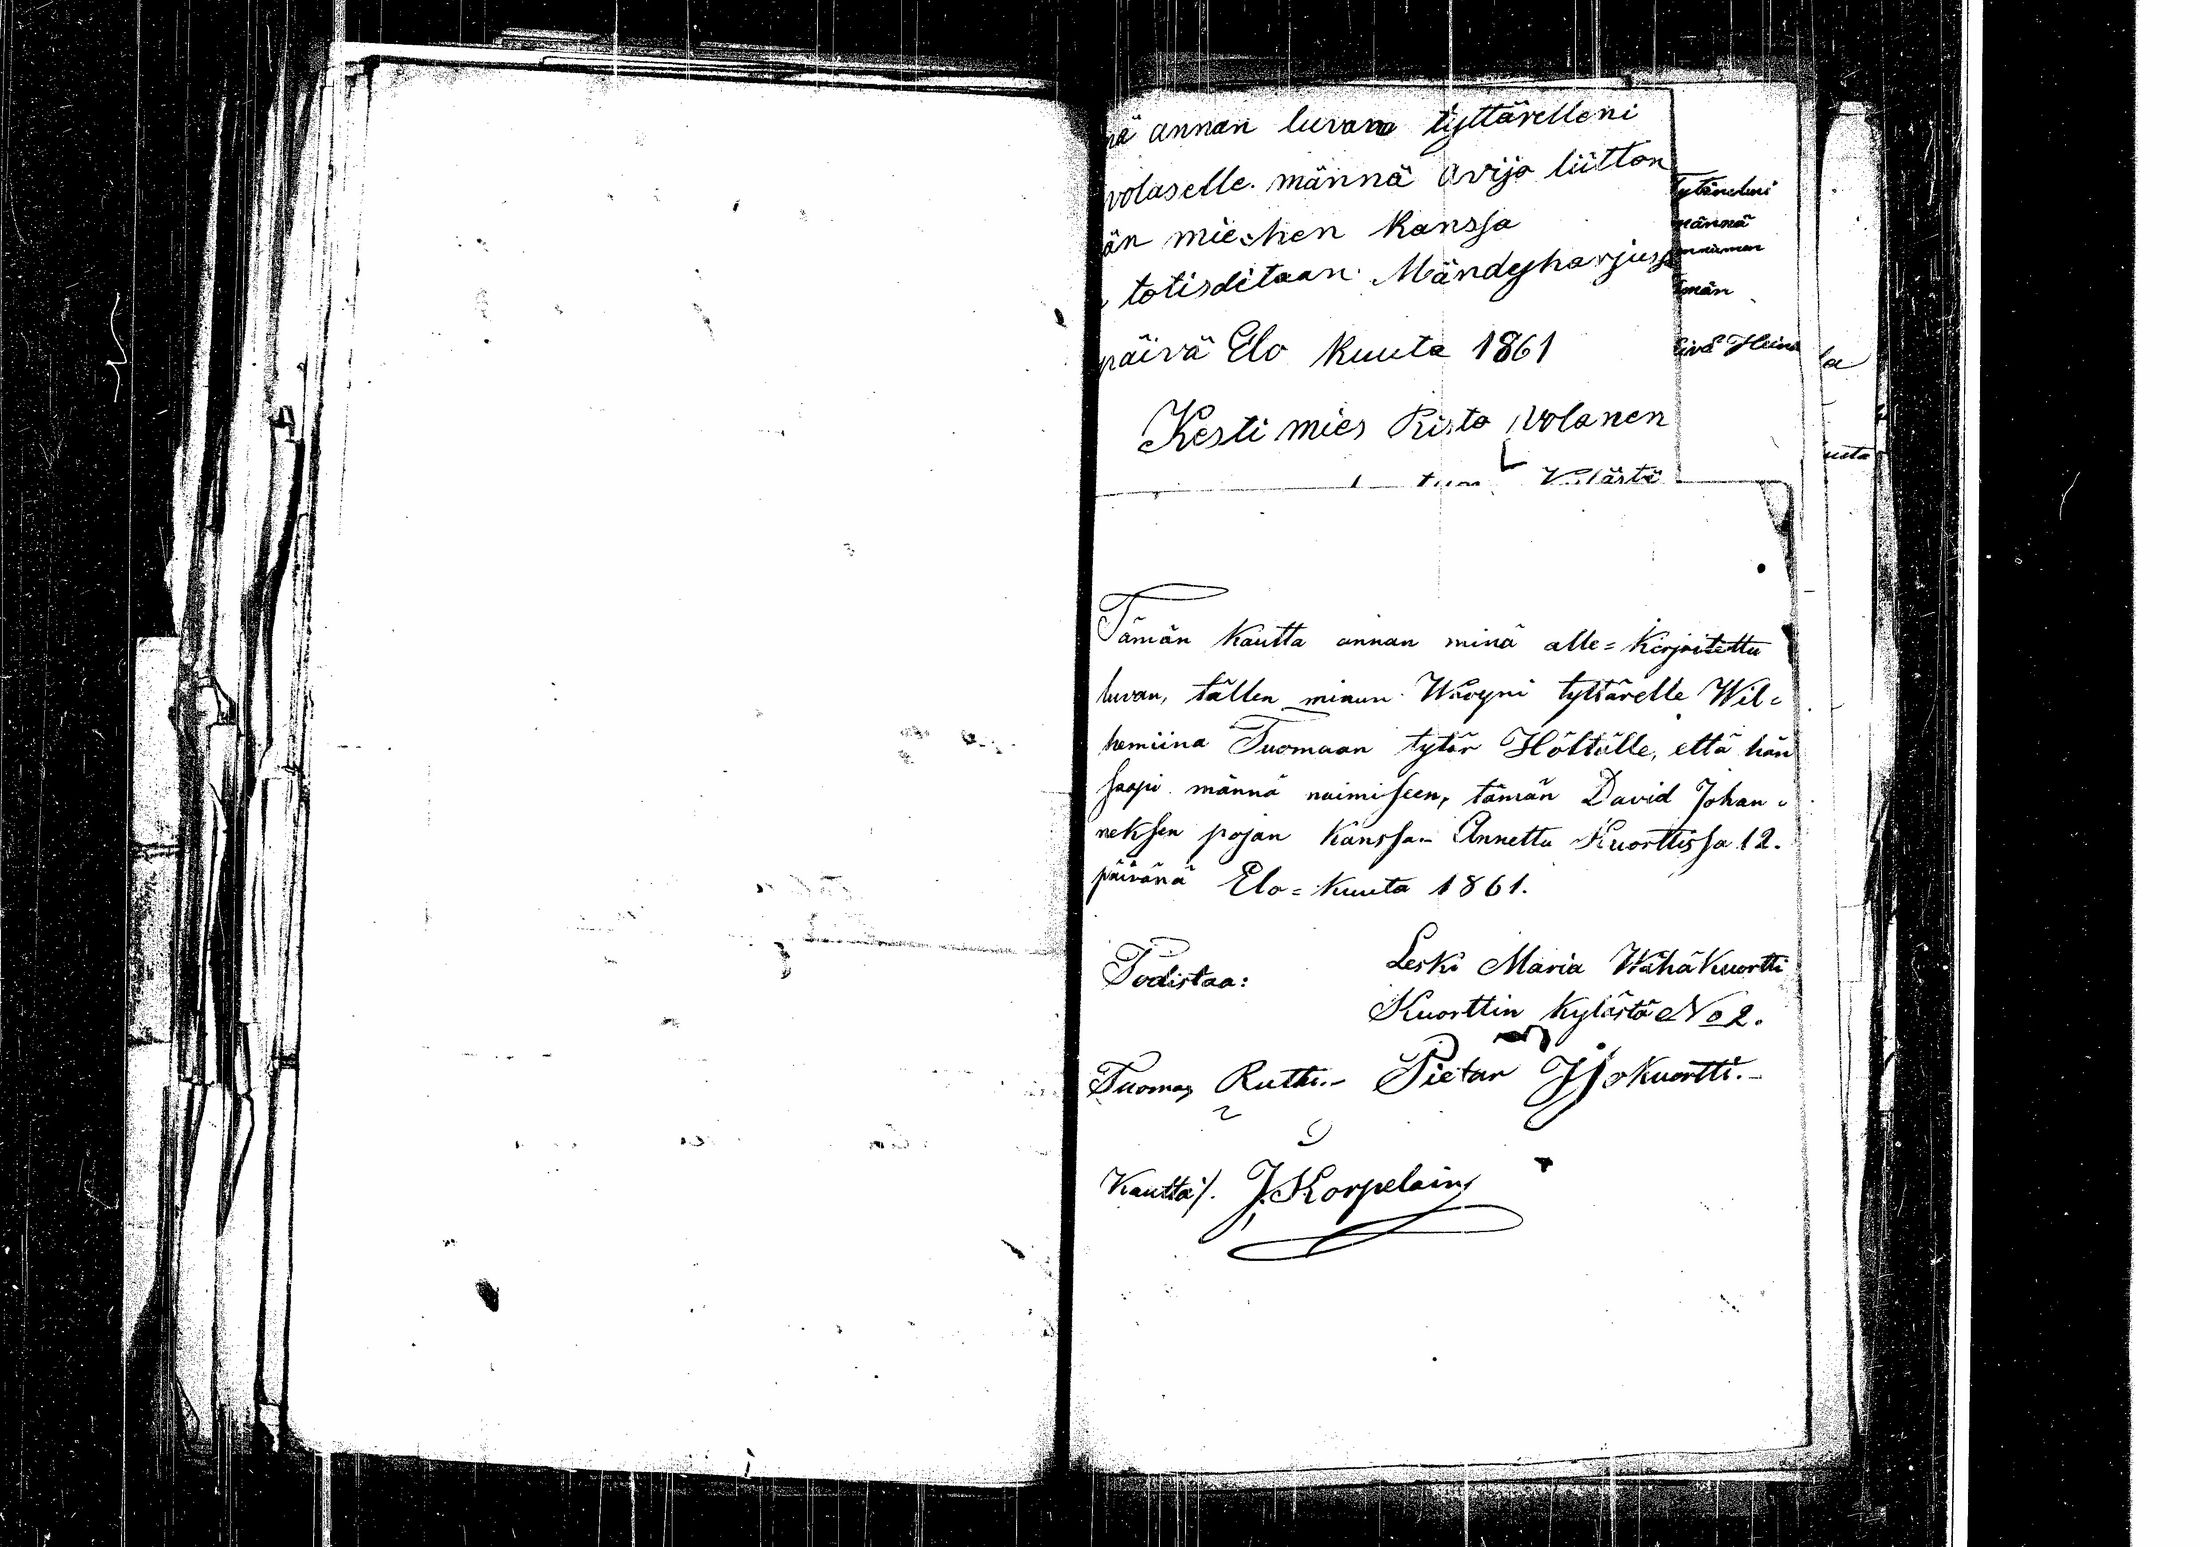 nä annan luvan tyttärelleni
volaselle. männä avijo liitton
än miehen kanssa
totisditaan. Mändyharjus
päivä Elo kuuta 1861
Kesti mies Risto Volanen
Kylästä
Tytärelleni
männä
Tmän
Heinä
la
uuta
Tämän kautta annan minä alle=kirjoitettu
luvan, tällen minun Wävyni tyttärelle Wil=
hemiina Tuomaan tytär Hölttälle, että hän
saapi männä naimiseen, tämän David Johan=
neksen pojan kanssa. Annettu Kuorttissa 12.
päivänä Elo=kuuta 1861.
Todistaa:
Leski Maria WähäKuortti
Kuorttin kylästä No 2.
Tuomas Rutti.- Pietar IsoKuortti.-
Kautta/. J. Korpelain